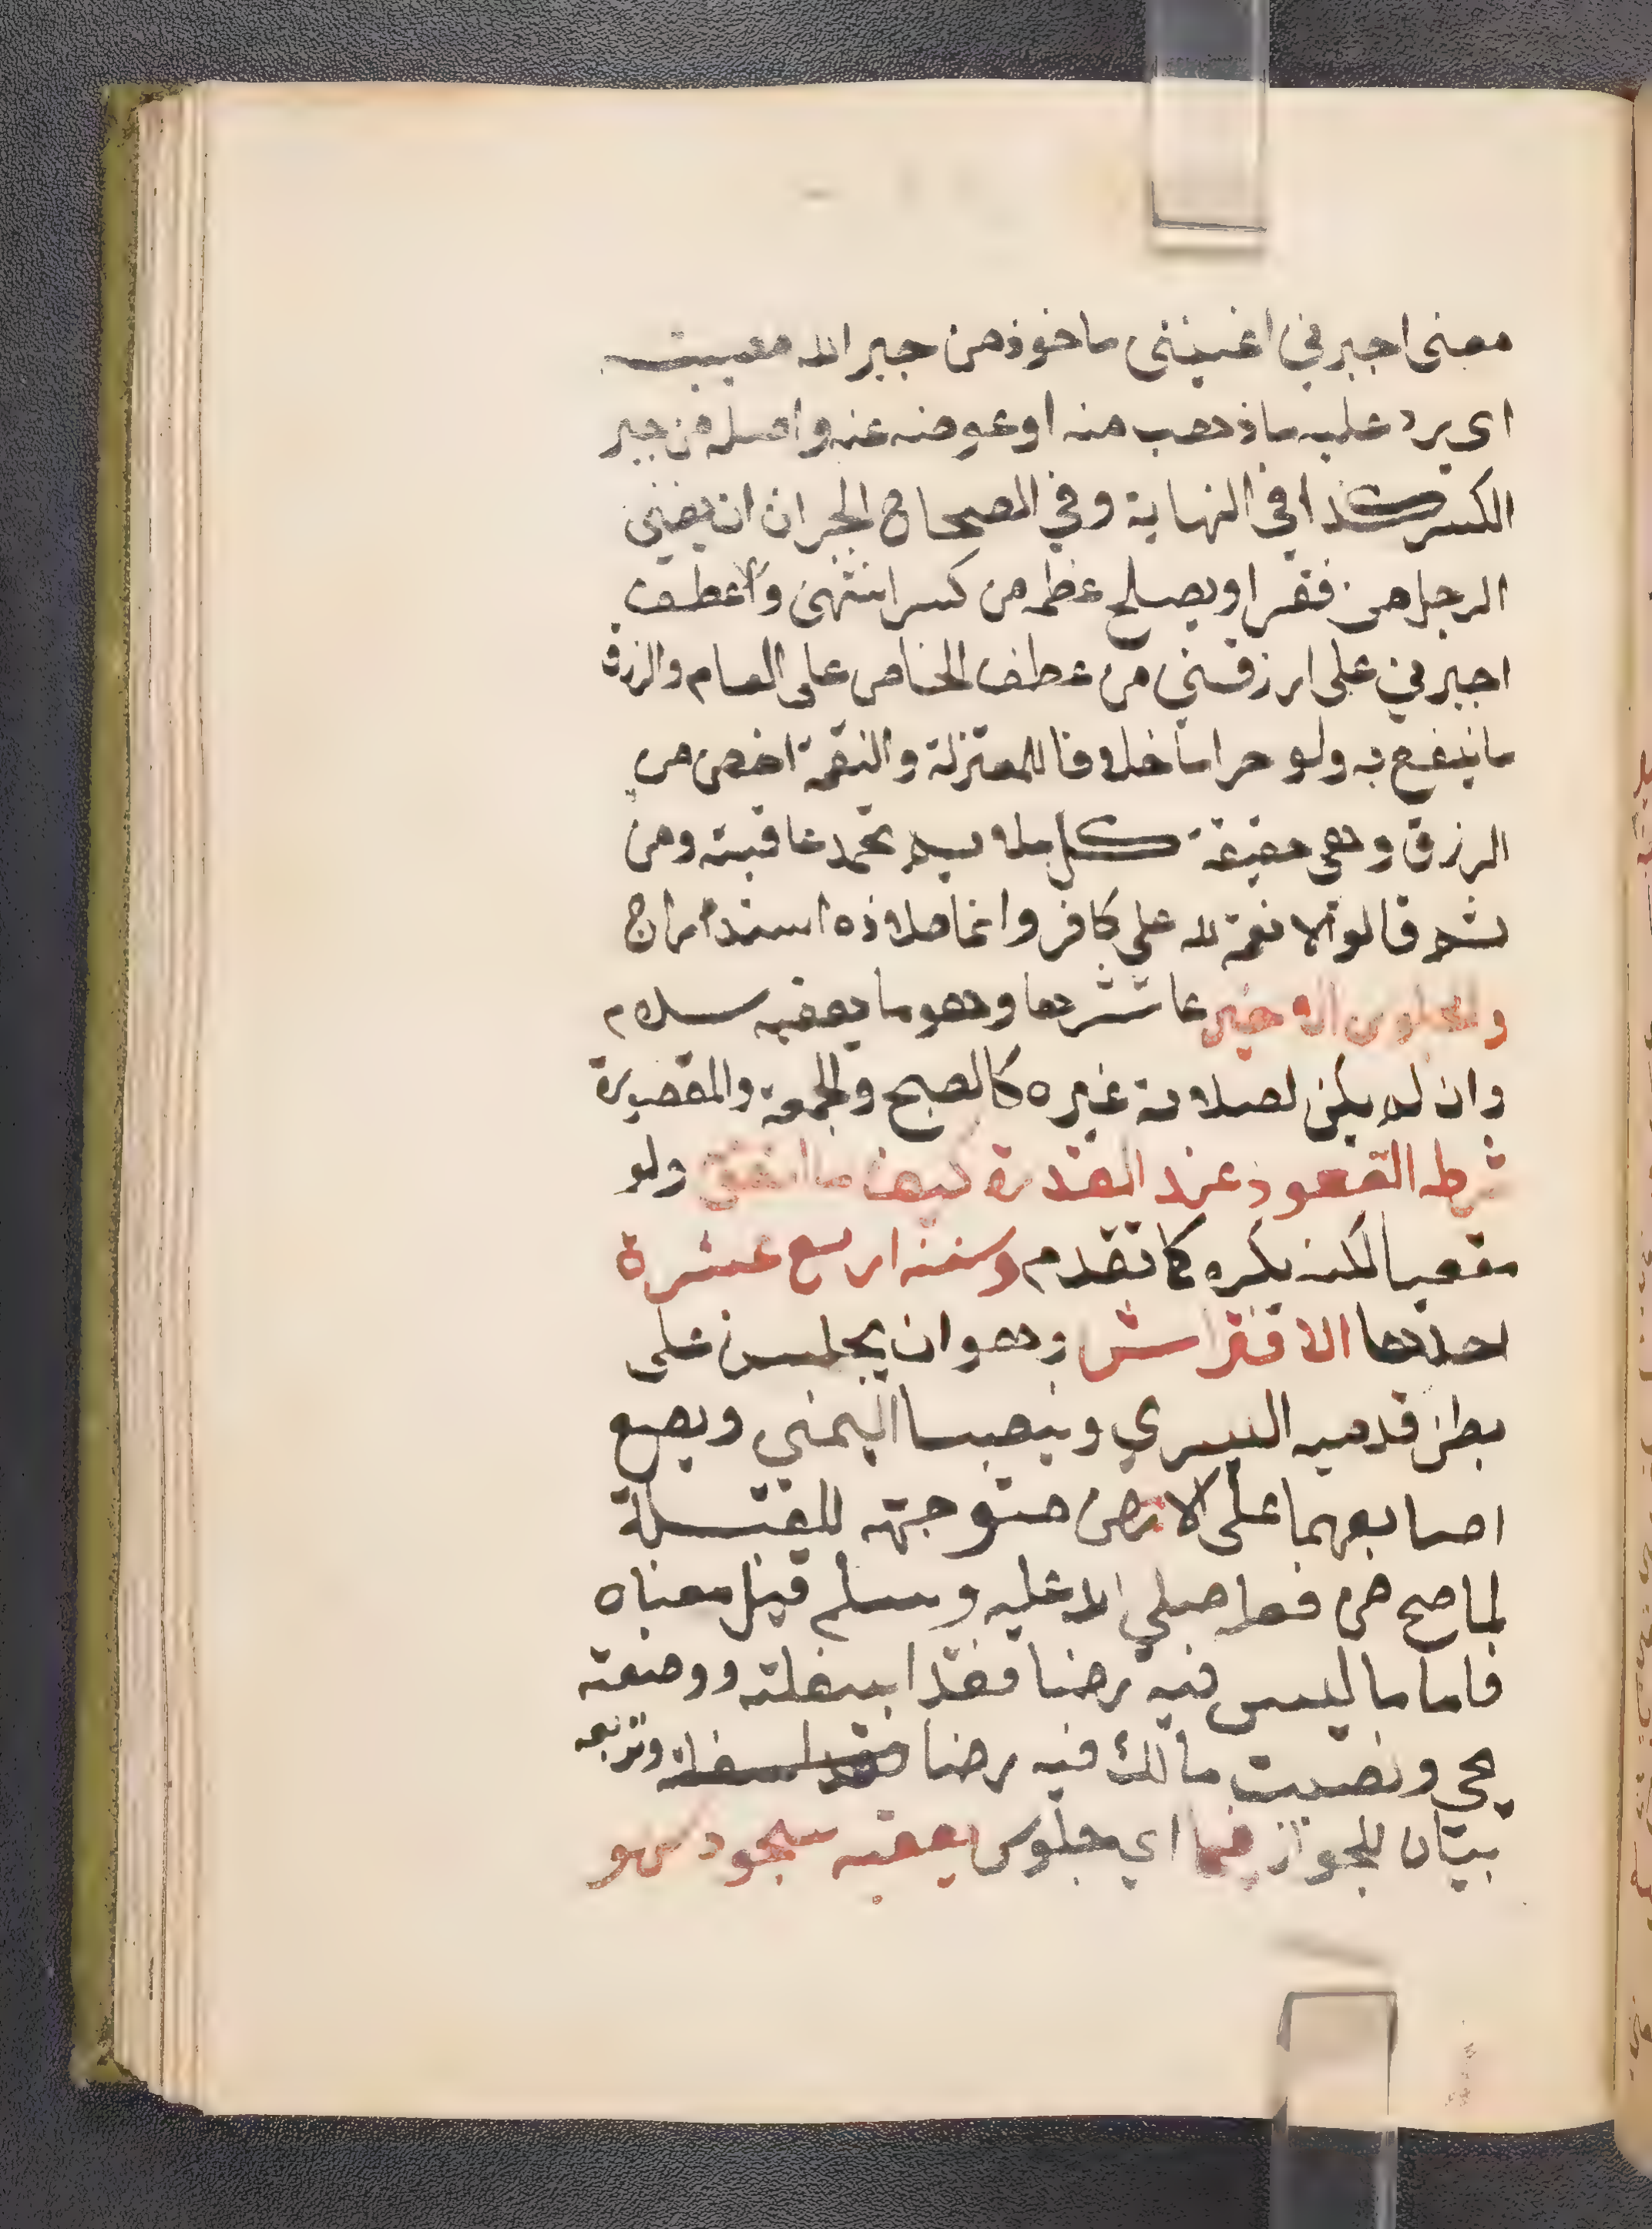 معنى اجبرني اغنيتنى ماخوذ من جبر الله مصيبته
اى يرد عليه ما ذهب منه او عوضه عنه واصله من جبر
الكسر كذا في النهاية وفي الصحاح الجبر ان ان يغني
الرجل من فقر او يصلح عظمه من كسر انتهى وعطف
اجبرني على ارزقني من عطف الخاص على العام والرزق
ما ينفع به ولو حراما خلافا للمعتزلة والنعمة اخص من
الرزق وهي حقيقة كل ملايم تحمد عاقبته ومن
ثم قالوا لا نعمة لله على كافر وانما ملاذه استدراج
والجلوس الاخير عاشرها وهو ما يعقبه سلام
وان لم يكن لصلاته غيره كالصبح والجمعة والمقصورة
شرطه القعود عند القدرة كيف ما اتفق ولو
مقعيا لكنه يكره كما تقدم وسننه اربع عشرة
احدها الافتراش وهو ان يجلس على
بطن قدميه اليسري وينصب اليمني ويضع
اصابعهما على الارض متوجهة للقبلة
لما صح من فعله صلي الله عليه وسلم قيل معناه
فاما ما ليس فيه رضا فقد اسفلته ووضعته
يحي ونصبت مالك فيه رضا وتربعه
بيان للجواز فيما اي جلوس يعقبه سجود سهو